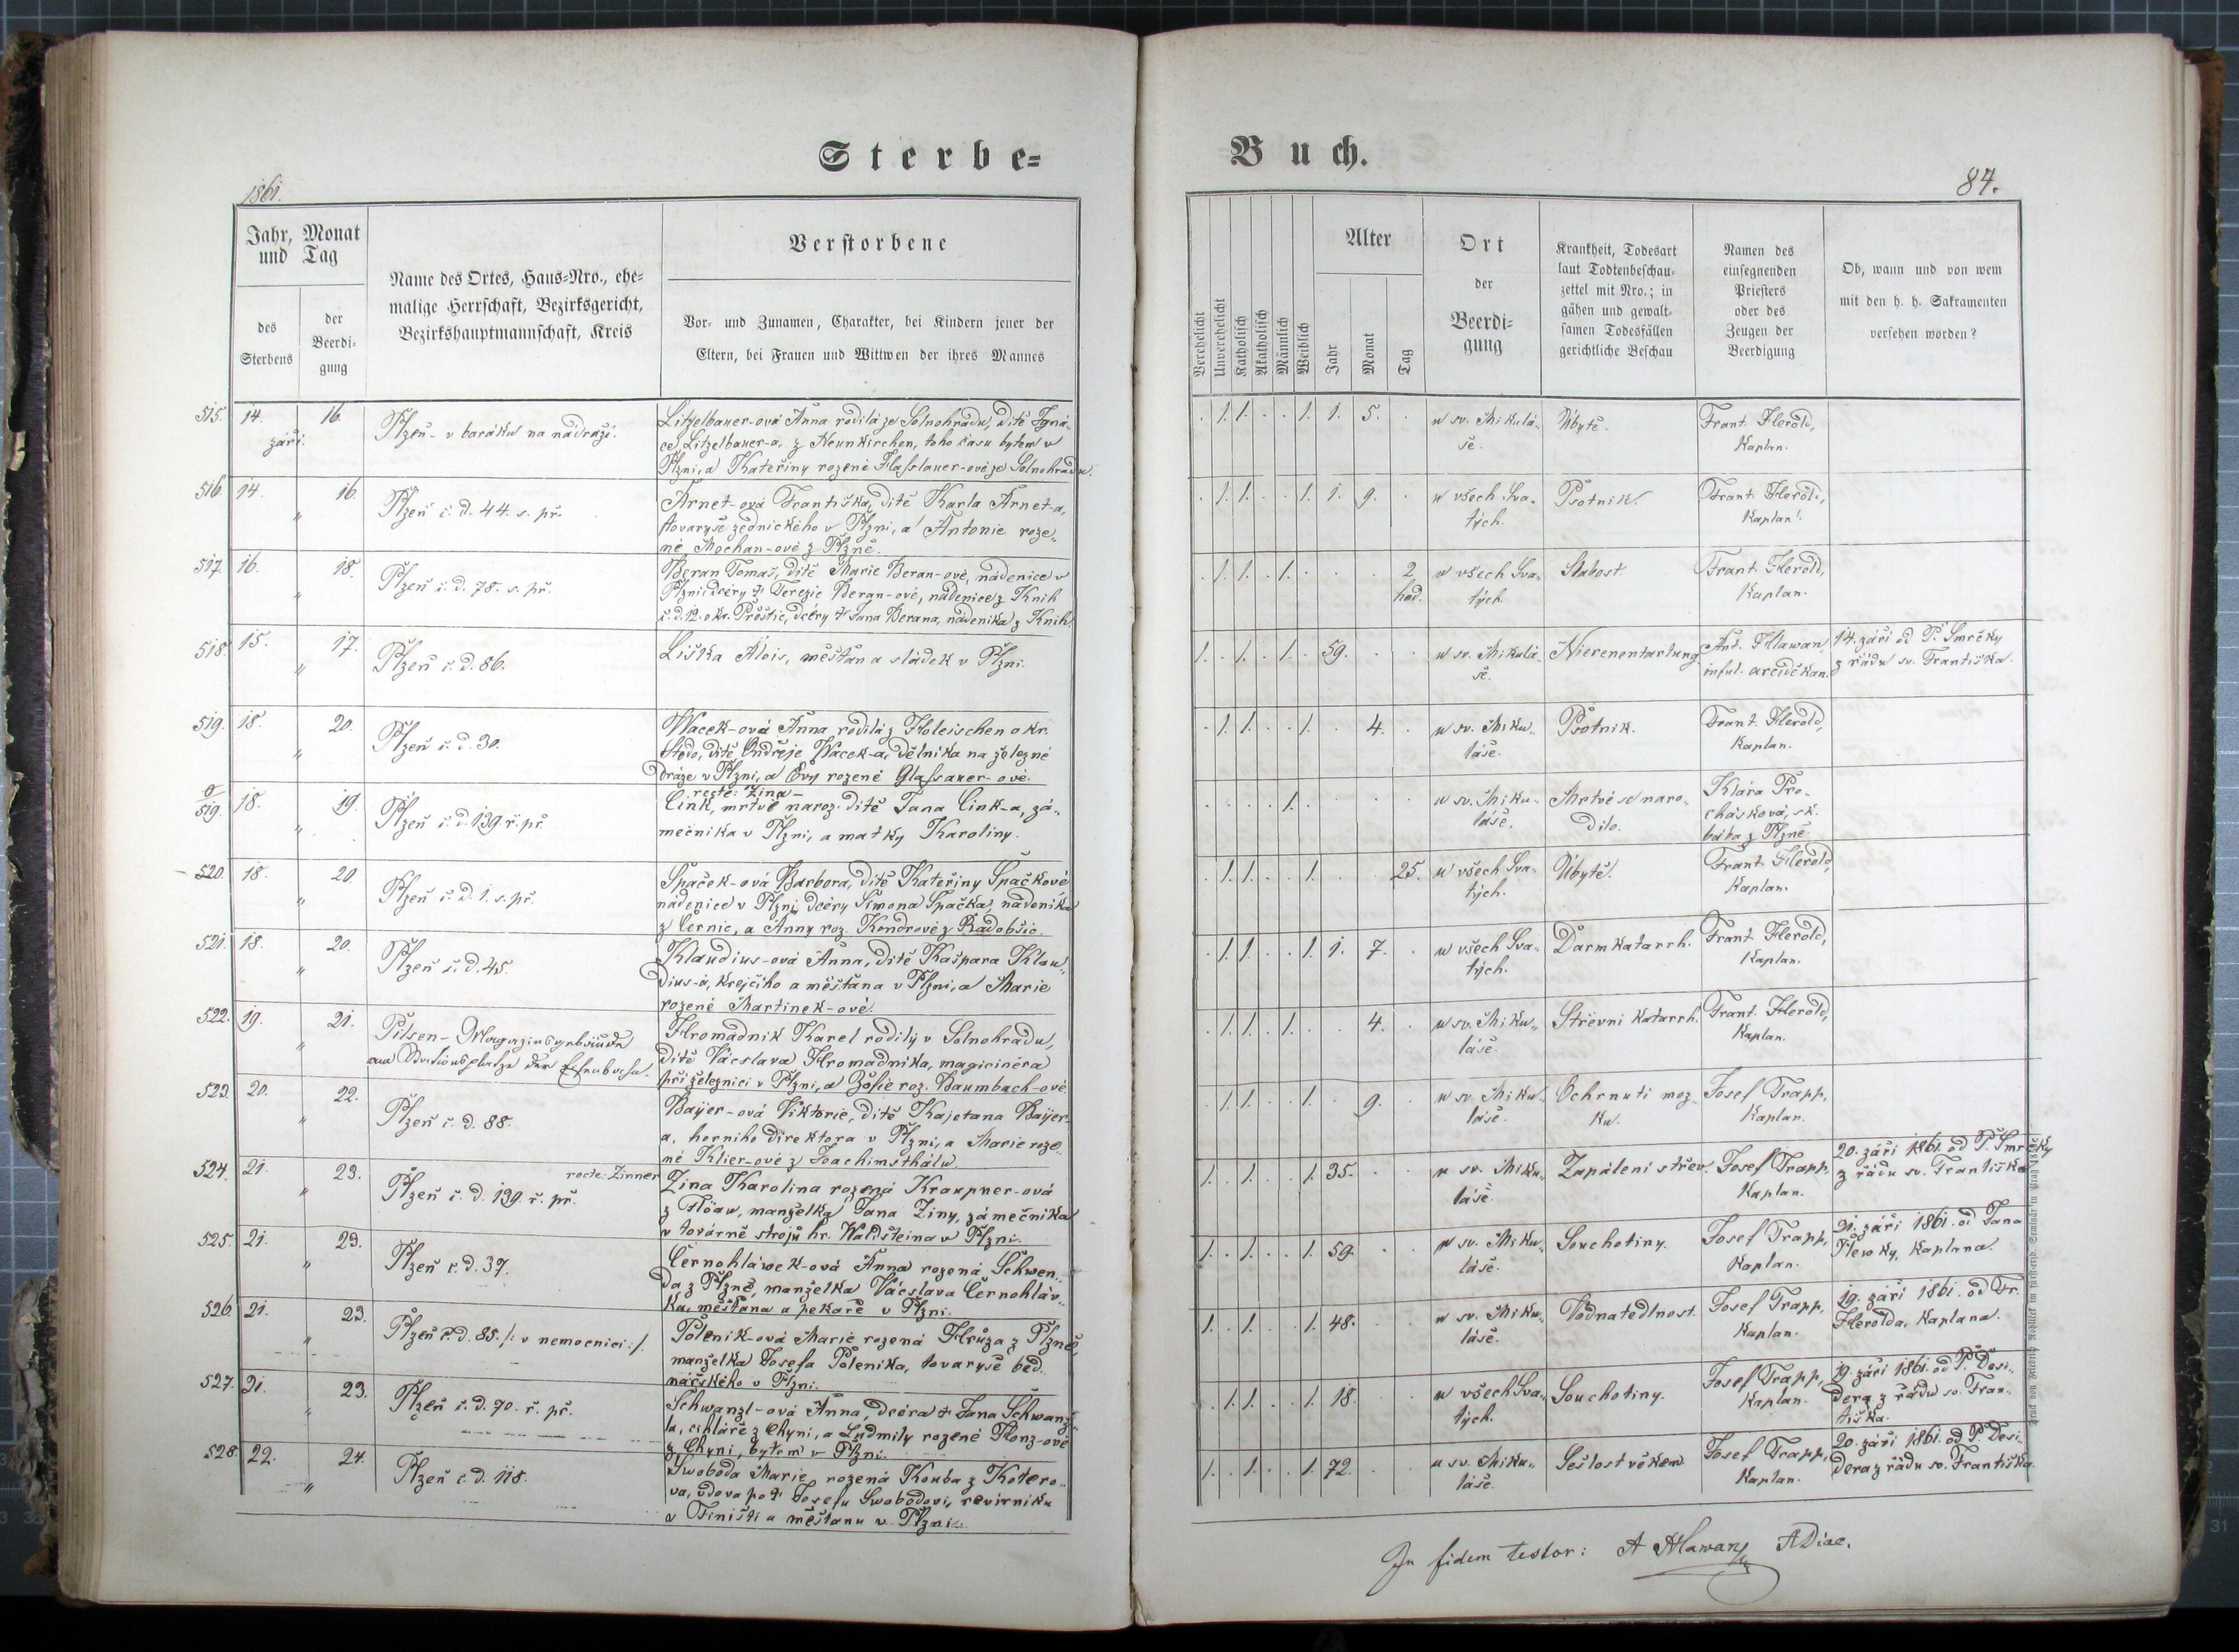 Sterbe=
Buch.
1861.
84.
Jahr, Monat
und Tag
des
Sterbens
der
Beerdi-
gung
Name des Ortes, Haus=Nro., ehe=
malige Herrschaft, Bezirksgericht,
Bezirkshauptmannschaft, Kreis
Verstorbene
Vor- und Zunamen, Charakter, bei Kindern jener der
Eltern, bei Frauen und Wittwen der ihres Mannes
Verehelicht
Unverehelicht
Katholisch
Akatholisch
Männlich
Weiblich
Alter
Jahr
Monat
Tag
Ort
der
Beerdi-
gung
Krankheit, Todesart
laut Todtenbeschau-
zettel mit Nro.; in
gähen und gewalt-
samen Todesfällen
gerichtliche Beschau
Namen des
einsegnenden
Priesters
oder des
Zeugen der
Beerdigung
Ob, wann und von wem
mit den h. h. Sakramenten
versehen worden?
515. 14. září. 16. Plzeň - v baráku na nádraží.
Litzelbauer-ová Anna rodilá ze Solnohradu, dítě Igná-
ce Litzelbauer-a, z Neunkirchen, toho času bytem v
Plzni, a Kateřiny rozené Hasslauer-ové ze Solnohradu.
. 1. 1. . . 1. 1. 5. . u sv. Mikulá-
še.
Úbytě.
Frant. Herold,
Kaplan.
516. 14. " 16. Plzeň č. d. 44. s. př.
Arnet-ová Františka, dítě Karla Arnet-a,
tovaryše zednického v Plzni, a Antonie roze-
né Mochan-ové z Plzně.
. 1. 1. . . 1. 1. 9. . u všech Sva-
tých.
Psotník.
Frant. Herold,
Kaplan.
517. 16. " 18. Plzeň č. d. 78. s. př.
Beran Tomaš, dítě Marie Beran-ové, nádenice v
Plzni dcéry † Terezie Beran-ové, nádenice z Knih
č. d. 12. okr. Přeštic, dcéry † Jana Berana, nádeníka z Knih.
. 1. 1. . 1. . . . 2
hod.
u všech Sva-
tých.
Slabost.
Frant. Herold,
Kaplan.
518. 15. " 17. Plzeň č. d. 86.
Liška Alois, měšťan a sládek v Plzni.
1. . 1. . 1. . 59. . . u sv. Mikulá-
še.
Nierenentartung.
Ant. Hlawan,
inful. arciděkan.
14. září od P. Smrčky
z řádu sv. Františka.
519. 18. " 20. Plzeň č. d. 30.
Wacek-ová Anna rodilá z Holeischen okr.
Stodo, dítě Ondřeje Wacek-a, dělníka na železné
dráze v Plzni, a Evy rozené Glassauer-ové.
. 1. 1. . . 1. . 4. . u sv. Miku-
láše.
Psotník.
Frant. Herold,
Kaplan.
0/519. 18. " 19. Plzeň č. d. 139. ř. př.
recte: Zina -
Cink, mrtvě naroz. dítě Jana Cink-a, zá-
mečníka v Plzni, a matky Karoliny.
. . . . 1. . . . . u sv. Miku-
láše.
Mrtvé se naro-
dilo.
Klára Pro-
chásková, sk.
baba z Plzně.
520. 18. " 20. Plzeň č. d. 1. s. př.
Špaček-ová Barbora, dítě Kateřiny Špačkové
nádenice v Plzni, dcéry Šimona Špačka, nádeníka
z Černic, a Anny roz. Kondrové z Radobšic.
. 1. 1. . . 1. . . 25. u všech Sva-
tých.
Úbytě.
Frant. Herold,
Kaplan.
521. 18. " 20. Plzeň č. d. 45.
Klaudius-ová Anna, dítě Kašpara Klau-
dius-a, krejčího a měšťana v Plzni, a Marie
rozené Martinek-ové.
. 1. 1. . . 1. 1. 7. . u všech Sva-
tých.
Darmkatarrh.
Frant. Herold,
Kaplan.
522. 19. " 21. Pilsen - Magazinsgebäude
am Stationsplatze der Eisenbahn.
Hromadnik Karel rodilý v Solnohradu,
dítě Vácslava Hromadníka, magacinéra
při železnici v Plzni, a Žofie roz. Baumbach-ové.
. 1. 1. . 1. . . 4. . u sv. Miku-
láše.
Střevní katarrh.
Frant. Herold,
Kaplan.
523. 20. " 22. Plzeň č. d. 88.
Bayer-ová Viktorie, dítě Kajetana Bayer-
a, horního direktora v Plzni, a Marie roze-
né Klier-ové z Joachimsthálu.
. 1. 1. . . 1. . 9. . u sv. Miku-
láše.
Ochrnutí moz-
ku.
Josef Trapp,
Kaplan.
524. 21. " 23. Plzeň č. d. 139. ř. př.
recte: Zinner
Zina Karolina rozená Kraupner-ová
z Flöau, manželka Jana Ziny, zámečníka
v továrně strojů hr. Waldšteina v Plzni.
1. . 1. . . 1. 35. . . u sv. Miku-
láše.
Zapálení střev.
Josef Trapp,
Kaplan.
20. září 1861. od P. Smrčky
z řádu sv. Františka
525. 21. " 23. Plzeň č. d. 37.
Černohláwek-ová Anna rozená Schwen-
da z Plzně, manželka Vácslava Černohláv-
ka, měšťana a pekaře v Plzni.
1. . 1. . . 1. 59. . . u sv. Miku-
láše.
Souchotiny.
Josef Trapp,
Kaplan.
21. září 1861. od Jana
Kaplana.
526. 21. " 23. Plzeň č. d. 85. /: v nemocnici :/.
Poleník-ová Marie rozená Hrůza z Plzně,
manželka Josefa Poleníka, tovaryše bed-
nářského v Plzni.
1. . 1. . . 1. 48. . . u sv. Miku-
láše.
Vodnatedlnost.
Josef Trapp,
Kaplan.
19. září 1861. od Fr.
Herolda, Kaplana.
527. 21. " 23. Plzeň č. d. 70. ř. př.
Schwanzl-ová Anna, dcéra † Jana Schwanz-
la, cihláře z Chyni, a Ludmily rozené Honz-ové
z Chyni, bytem v Plzni.
. 1. 1. . . 1. 18. . . u všech Sva-
tých.
Souchotiny.
Josef Trapp,
Kaplan.
19. září 1861. od P. Desi-
dera z řádu sv. Fran-
tiška.
528. 22. " 24. Plzeň č. d. 118.
Swoboda Marie, rozená Kouba z Kotero-
va, vdova po † Josefu Swobodovi, revírníku
v Tiništi a měšťanu v Plzni.
1. . 1. . . 1. 72. . . u sv. Miku-
láše.
Sešlost věkem
Josef Trapp,
Kaplan.
20. září 1861. od P. Desi-
dera z řádu sv. Františka.
In fidem testor: A Hlawan ADiac.